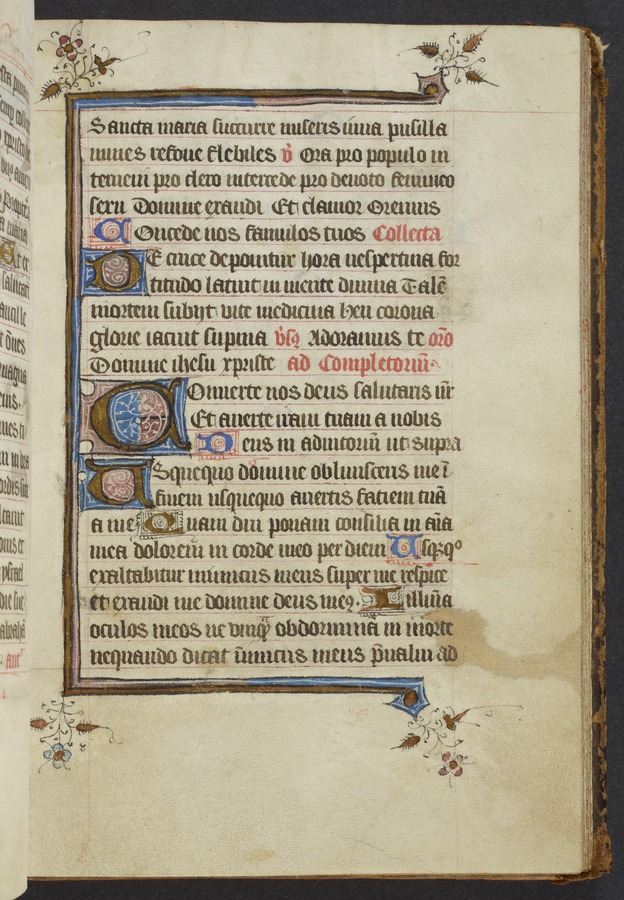 Sancta maria succurre miseris iuua pusilla
nimes refoue flebiles v̉ Ora pro populo in
terueni pro clero intercede pro deuoto femineo
sexu Domine exaudi Et clamor Oremus
Concede nos famulos tuos Collecta
De cruce deponitur hora uespertina for
titudo latuit in mente diuina Talē
mortem subijt uite medicina heu corona
glorie iacuit supina v̉sꝫ Adoramus te oro
Domine ihesu xpriste ad Completoriū
Onuerte nos deus salutaris nr̄
Et auerte iram tuam a nobis
Deus in adiutoriū ut supra
Vsquequo domine obliuisceris me ī
finem usquequo auertis faciem tuā
a me Quam diu ponam consilia in aīa
mea dolorem in corde meo per diem Vsqꝫqº
exaltabitur inimicus meus super me respice
et exaudi me domine deus meꝰ. Illuīa
oculos meos ne umqᷓ obdormiā in morte
nequando dicat inimicus meus p̄ualui ad